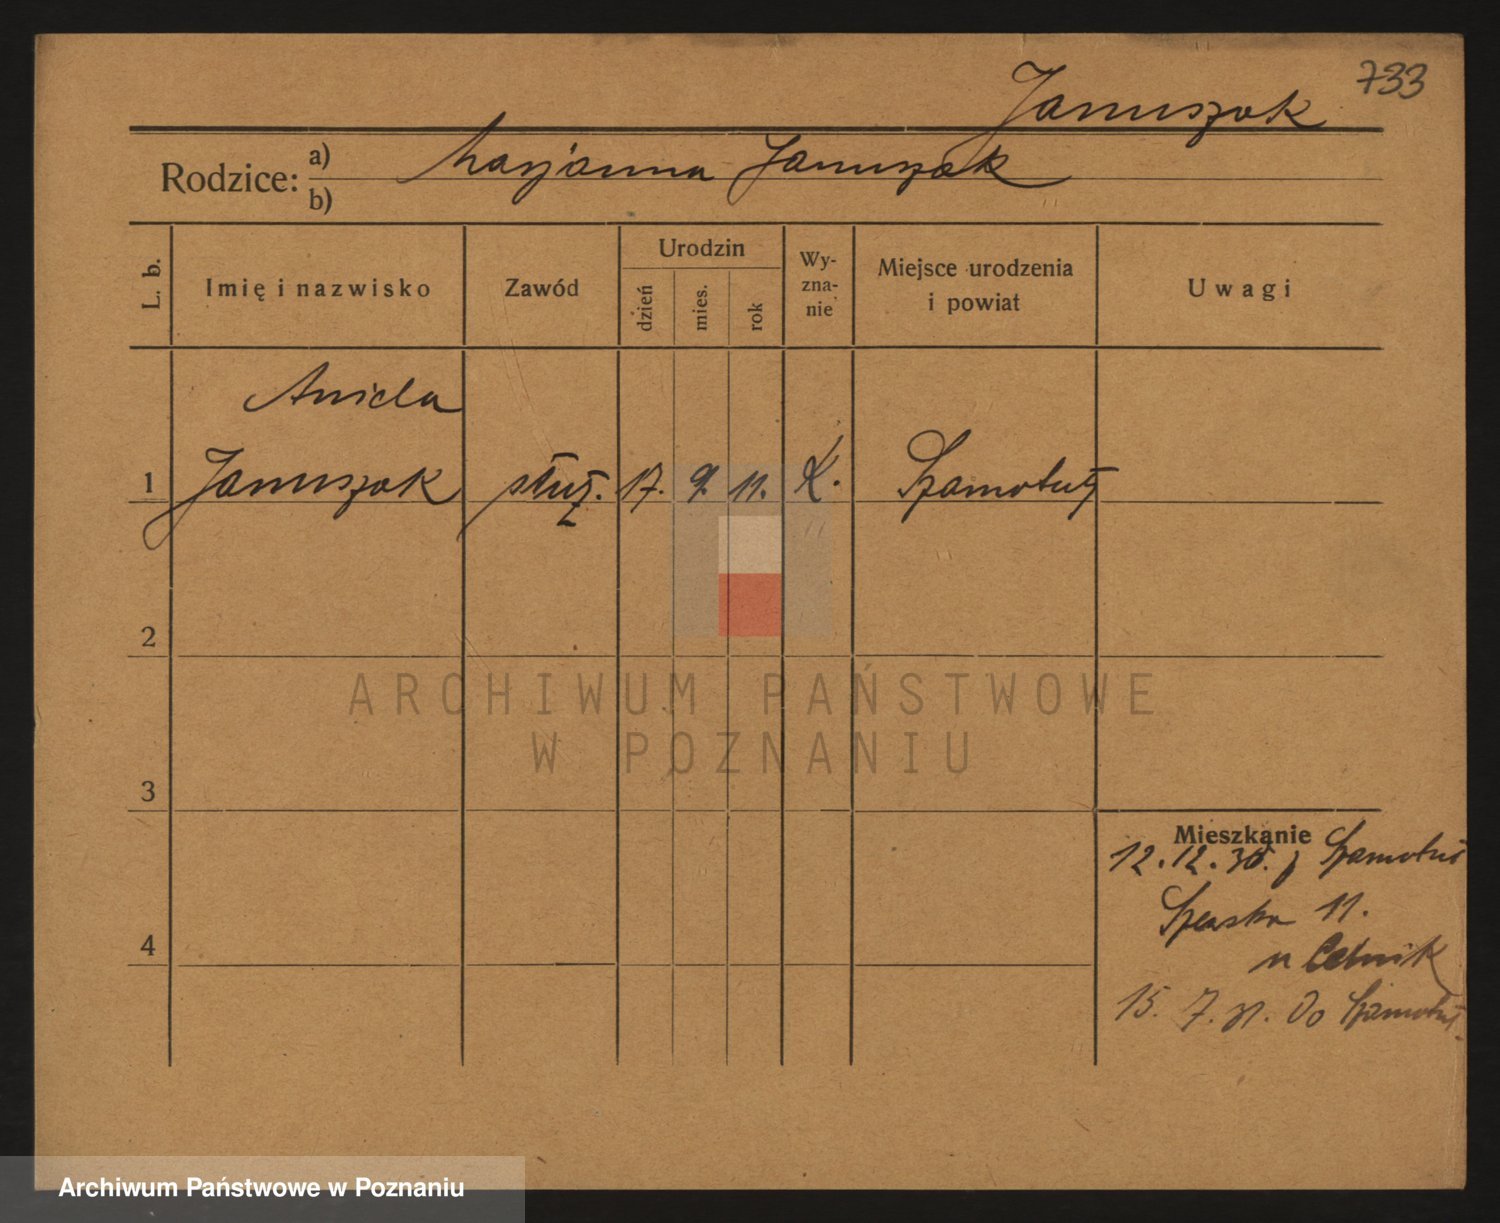 733
Januszak
Rodzice: a) Marjanna Januszak
b)
L. b. Imię i nazwisko Zawód Urodzin dzień mies. rok Wy-zna-nie Miejsce urodzenia i powiat Uwagi
Aniela
1 Januszak służ. 17. 9. 11. K. Szamotuły
2
ARCHIWUM PAŃSTWOWE
W POZNANIU
3
Mieszkanie
12.12.30. z Szamotuł
11.
u
4
15. 7. 31. do Szamotuł
Archiwum Państwowe w Poznaniu